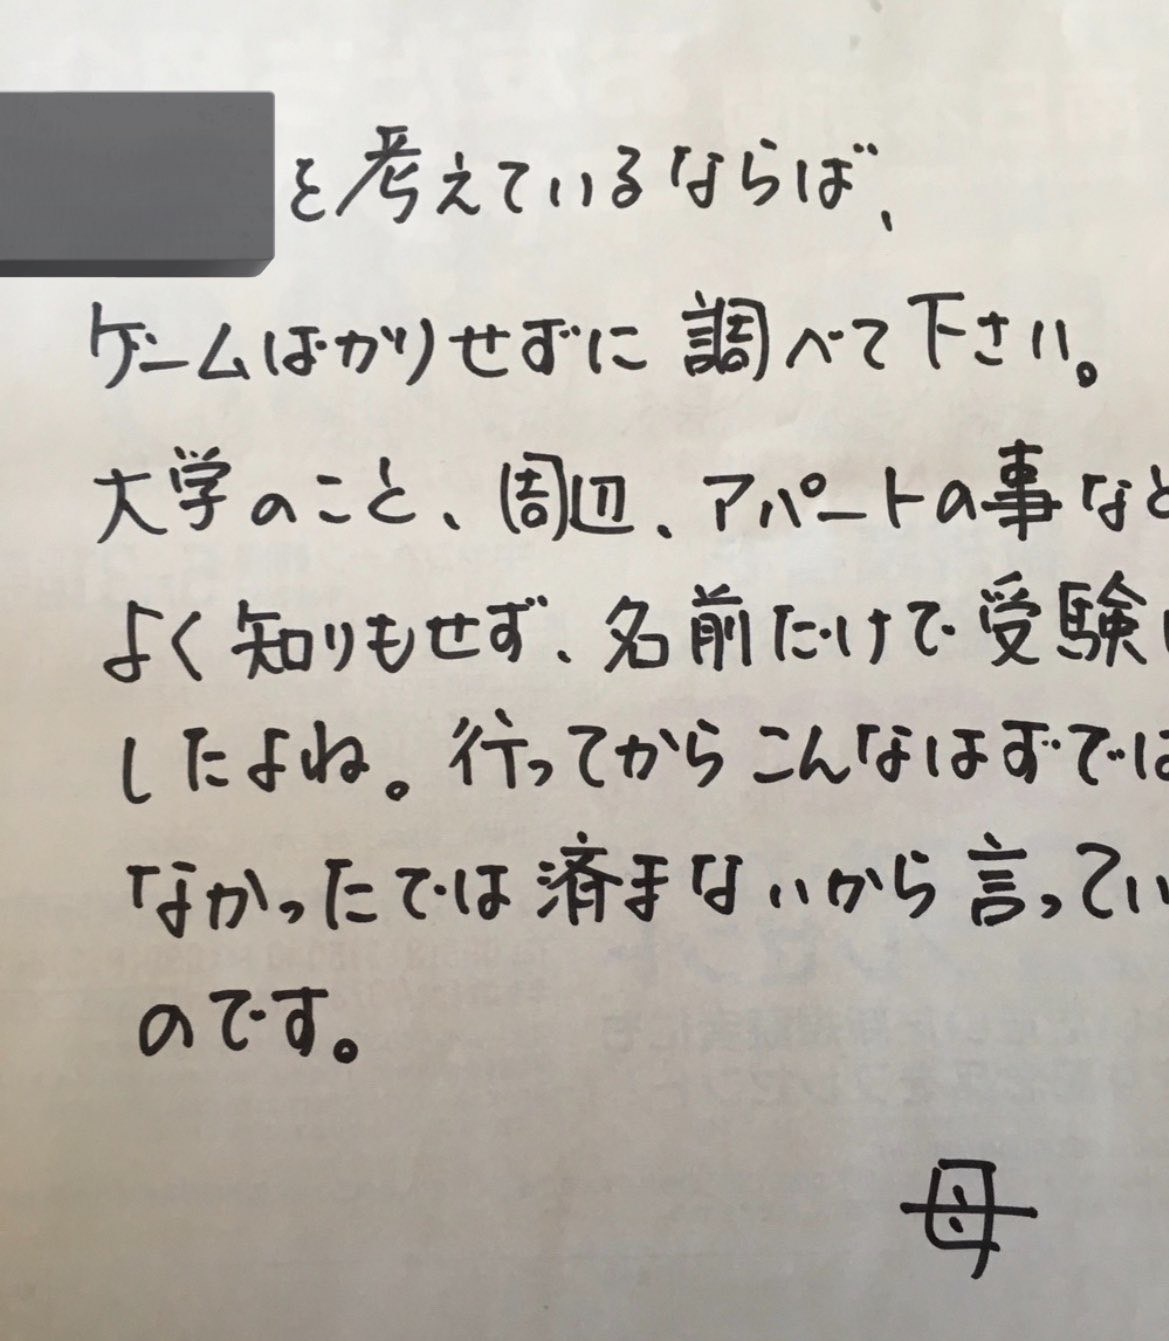 を考えているならば、
ゲームばかりせずに調べて下さい。
大学のこと、周辺、アパートの事など
よく知りもせず、名前だけで受験
したよね。行ってからこんなはずでは
なかったでは済まないから言ってい
のです。
母